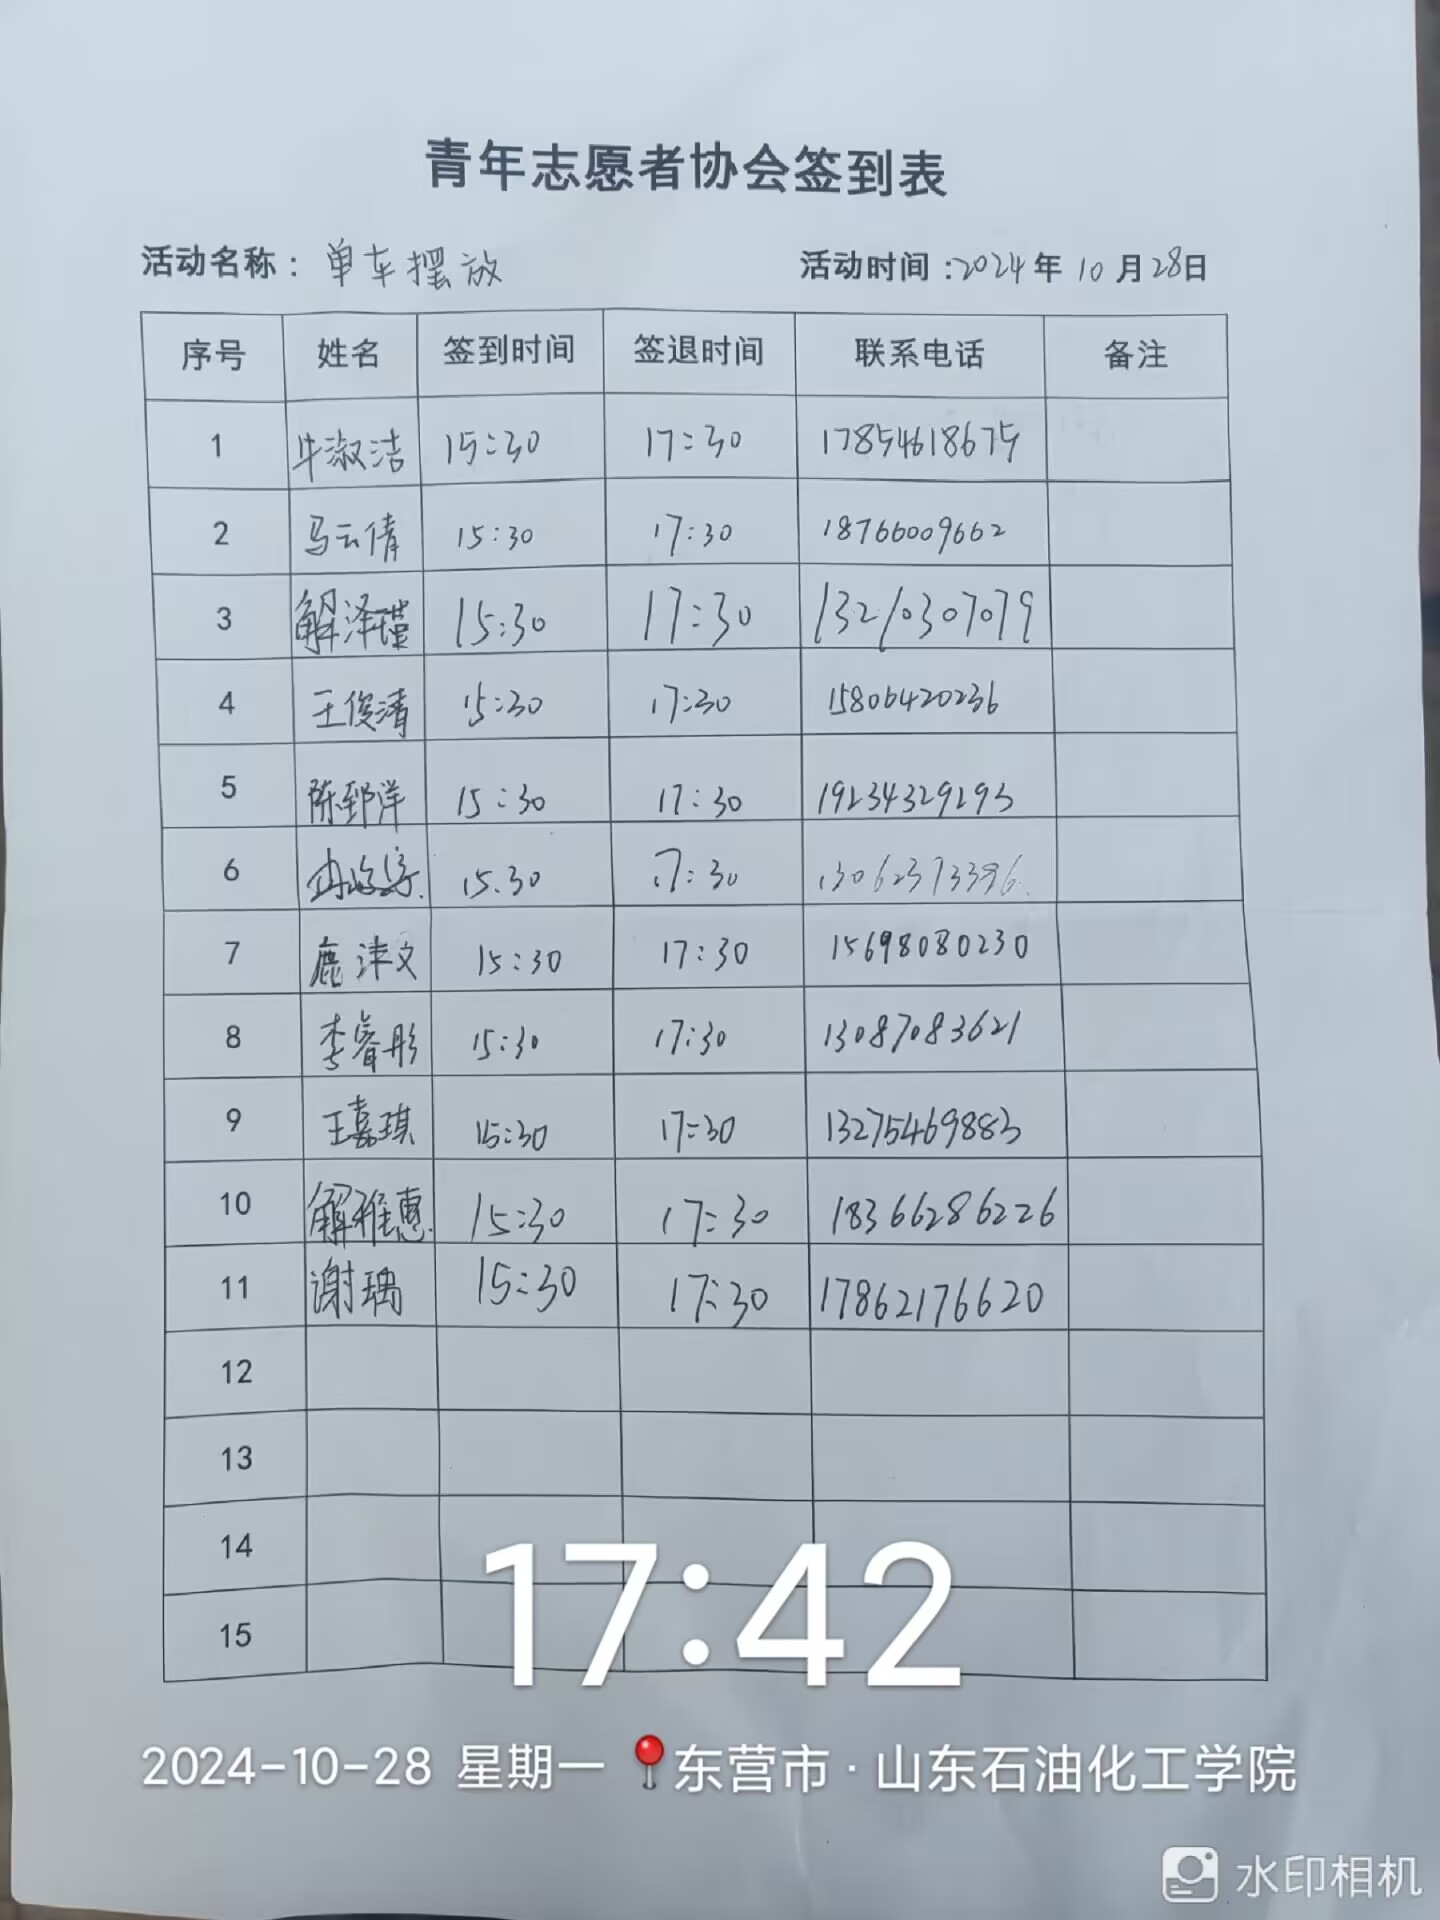 青年志愿者协会签到表
活动名称：单车摆放 活动时间：2024年10月28日
序号 姓名 签到时间 签退时间 联系电话 备注
1 牛淑洁 15:30 17:30 17854618675
2 马云倩 15:30 17:30 18766009662
3 解泽瑾 15:30 17:30 13210307079
4 王俊清 15:30 17:30 15806420236
5 陈郅洋 15:30 17:30 19234329293
6 15:30 17:30 13062373396
7 鹿津文 15:30 17:30 15698080230
8 李睿彤 15:30 17:30 13087083621
9 王嘉琪 15:30 17:30 13275469883
10 解雅惠 15:30 17:30 18366286226
11 谢瑀 15:30 17:30 17862176620
12
13
14
15
17:42
2024-10-28 星期一 东营市·山东石油化工学院
水印相机